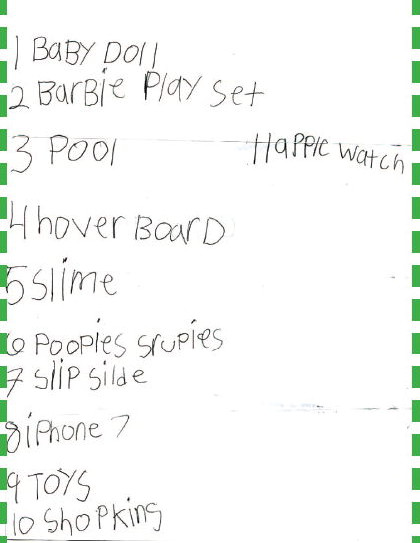 1 BaBY Doll
2 BarBie Play Set
3 Pool
11 aPPle watch
4 hover BoarD
5 Slime
6 PooPies sruPies
7 SliP Silde
8 iPhone 7
9 TOYS
10 ShoPKing